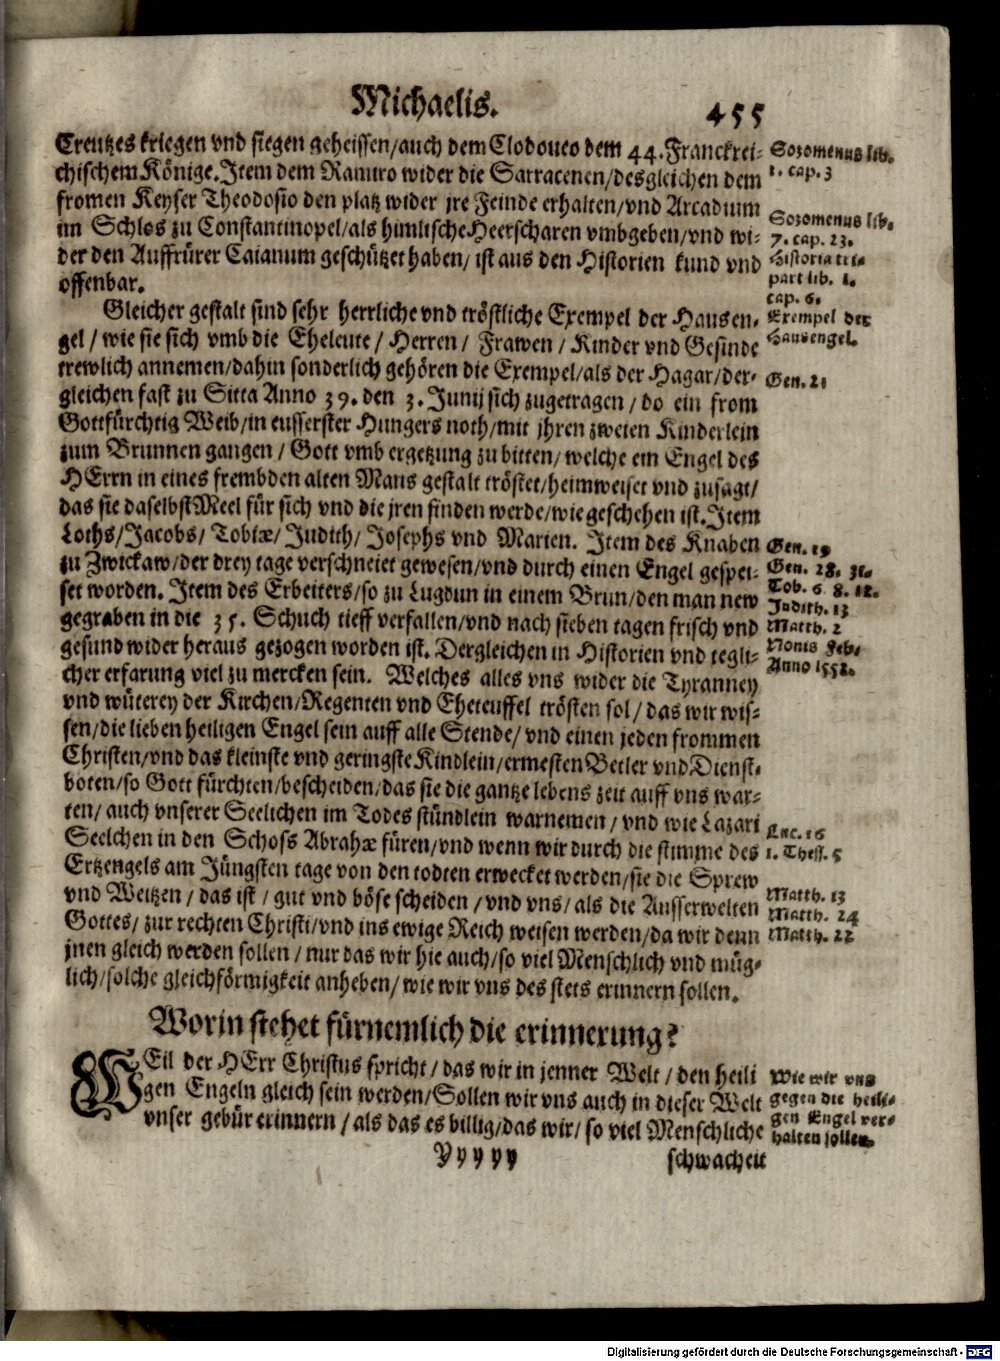 Michaelis. 455
Creutzes kriegen vnd siegen geheissen/auch dem Clodoueo dem 44. Franckrei-
chischem Könige. Item dem Ramiro wider die Sarracenen/desgleichen dem
fromen Keyser Theodosio den platz wider jre Feinde erhalten/vnd Arcadium
im Schlos zu Constantinopel/als himlische Heerscharen vmbgeben/vnd wi-
der den Auffrürer Caianum geschützet haben/ ist aus den Historien kund vnd
offenbar.
Sozomenus lib.
1. cap. 3
Sozomenus lib.
7. cap. 23.
Historia tri-
part lib. 1.
cap. 6.
Gleicher gestalt sind sehr herrliche vnd tröstliche Exempel der Hausen-
gel / wie sie sich vmb die Eheleute / Herren / Frawen / Kinder vnd Gesinde
trewlich annemen/dahin sonderlich gehören die Exempel/als der Hagar/der-
gleichen fast zu Sitta Anno 39. den 3. Junij sich zugetragen / do ein from
Gottfürchtig Weib/in eusserster Hungers noth/mit jhren zweien Kinderlein
zum Brunnen gangen / Gott vmb ergetzung zu bitten/ welche ein Engel des
HErrn in eines frembden alten Mans gestalt tröstet/heimweiset vnd zusagt/
das sie daselbst Meel für sich vnd die jren finden werde/wie geschehen ist. Item
Loths/Jacobs/ Tobiæ/ Judith/ Josephs vnd Marien. Item des Knaben
zu Zwickaw/der drey tage verschneiet gewesen/vnd durch einen Engel gespei-
set worden. Item des Erbeiters/so zu Lugdun in einem Brun/den man new
gegraben in die 35. Schuch tieff verfallen/vnd nach sieben tagen frisch vnd
gesund wider heraus gezogen worden ist. Dergleichen in Historien vnd tegli-
cher erfarung viel zu mercken sein. Welches alles vns wider die Tyranney
vnd wüterey der Kirchen/Regenten vnd Eheteuffel trösten sol/ das wir wis-
sen/die lieben heiligen Engel sein auff alle Stende/ vnd einen jeden frommen
Christen/vnd das kleinste vnd geringste Kindlein/ermesten Betler vnd Dienst-
boten/so Gott fürchten/bescheiden/das sie die gantze lebens zeit auff vns war-
ten/ auch vnserer Seelichen im Todes stündlein warnemen/ vnd wie Lazari
Seelchen in den Schoss Abrahæ füren/vnd wenn wir durch die stimme des
Ertzengels am Jüngsten tage von den todten erwecket werden/sie die Sprew
vnd Weitzen / das ist / gut vnd böse scheiden / vnd vns/ als die Ausserwelten
Gottes/ zur rechten Christi/vnd ins ewige Reich weisen werden/da wir denn
jnen gleich werden sollen / nur das wir hie auch/so viel Menschlich vnd müg-
lich/solche gleichförmigkeit anheben/ wie wir vns des stets erinnern sollen.
Exempel der
Hausengel.
Gen. 21
Gen. 19
Gen. 28. 31.
Tob. 6. 8. 12.
Judith. 13
Matth. 2
Nonis Feb.
Anno 1552.
Luc. 16
1. Thess. 5
Matth. 13
Matth. 24
Matth. 22
Worin stehet fürnemlich die erinnerung?
WEil der HErr Christus spricht / das wir in jenner Welt / den heili
gen Engeln gleich sein werden/Sollen wir vns auch in dieser Welt
vnser gebür erinnern / als das es billig/das wir/ so viel Menschliche
Wie wir vns
gegen die heili-
gen Engel ver-
halten sollen.
Yyyyy schwacheit
Digitalisierung gefördert durch die Deutsche Forschungsgemeinschaft - DFG